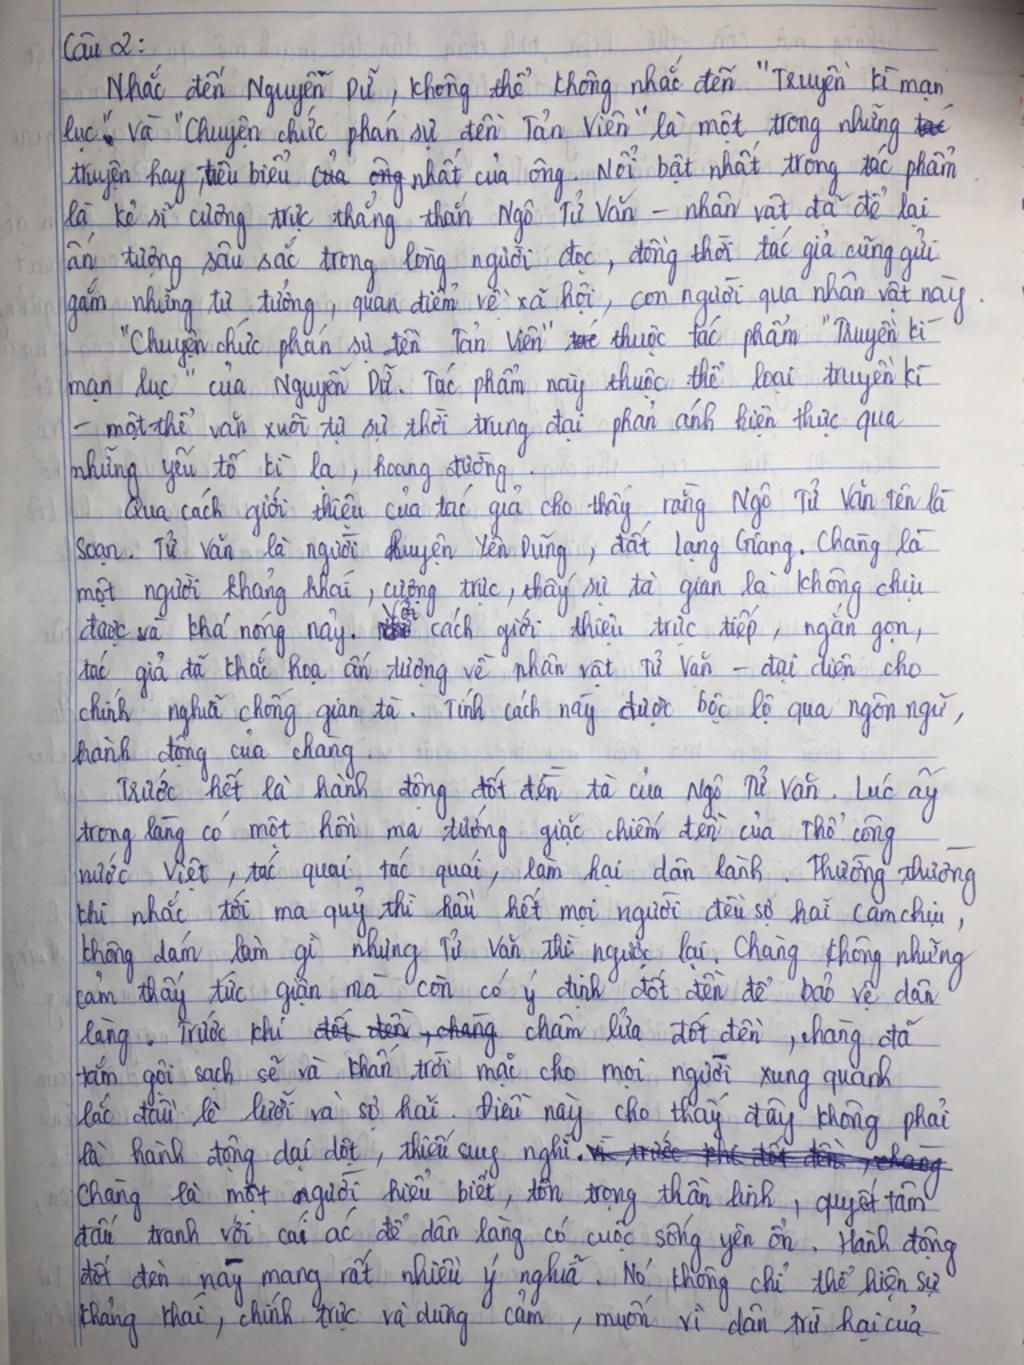 Câu 2:
Nhắc đến Nguyễn Dữ, không thể không nhắc đến "Truyền kì mạn
lục". Và "Chuyện chức phán sự đền Tản Viên" là một trong những tác
truyện hay, tiêu biểu của ông nhất của ông. Nổi bật nhất trong tác phẩm
là kẻ sĩ cương trực thẳng thắn Ngô Tử Văn - nhân vật đã để lại
ấn tượng sâu sắc trong lòng người đọc, đồng thời tác giả cũng gửi
gắm những tư tưởng, quan điểm về xã hội, con người qua nhân vật này.
"Chuyện chức phán sự đền Tản Viên" tác thuộc tác phẩm "Truyền kì
mạn lục" của Nguyễn Dữ. Tác phẩm này thuộc thể loại truyền kì
- một thể văn xuôi tự sự thời trung đại phản ánh hiện thực qua
những yếu tố kì lạ, hoang đường.
Qua cách giới thiệu của tác giả cho thấy rằng Ngô Tử Văn tên là
Soạn. Tử Văn là người huyện Yên Dũng, đất Lạng Giang. Chàng là
một người khảng khái, cương trực, thấy sự tà gian là không chịu
được và khá nóng nảy. Với cách giới thiệu trực tiếp, ngắn gọn,
tác giả đã khắc hoạ ấn tượng về nhân vật Tử Văn - đại diện cho
chính nghĩa chống gian tà. Tính cách này được bộc lộ qua ngôn ngữ,
hành động của chàng.
Trước hết là hành động đốt đền tà của Ngô Tử Văn. Lúc ấy
trong làng có một hồn ma tướng giặc chiếm đền của Thổ công
nước Việt, tác quai tác quái, làm hại dân lành. Thường thường
khi nhắc tới ma quỷ thì hầu hết mọi người đều sợ hãi cam chịu,
không dám làm gì nhưng Tử Văn thì ngược lại. Chàng không những
cảm thấy tức giận mà còn có ý định đốt đền để bảo vệ dân
làng. Trước khi đốt đền, chàng châm lửa đốt đền, chàng đã
tắm gội sạch sẽ và khấn trời mặc cho mọi người xung quanh
lắc đầu lè lưỡi và sợ hãi. Điều này cho thấy đây không phải
là hành động dại dột, thiếu suy nghĩ. Vì trước khi đốt đền, chàng
Chàng là một người hiểu biết, tôn trọng thần linh, quyết tâm
đấu tranh với cái ác để dân làng có cuộc sống yên ổn. Hành động
đốt đền này mang rất nhiều ý nghĩa. Nó không chỉ thể hiện sự
khảng khái, chính trực và dũng cảm, muốn vì dân trừ hại của